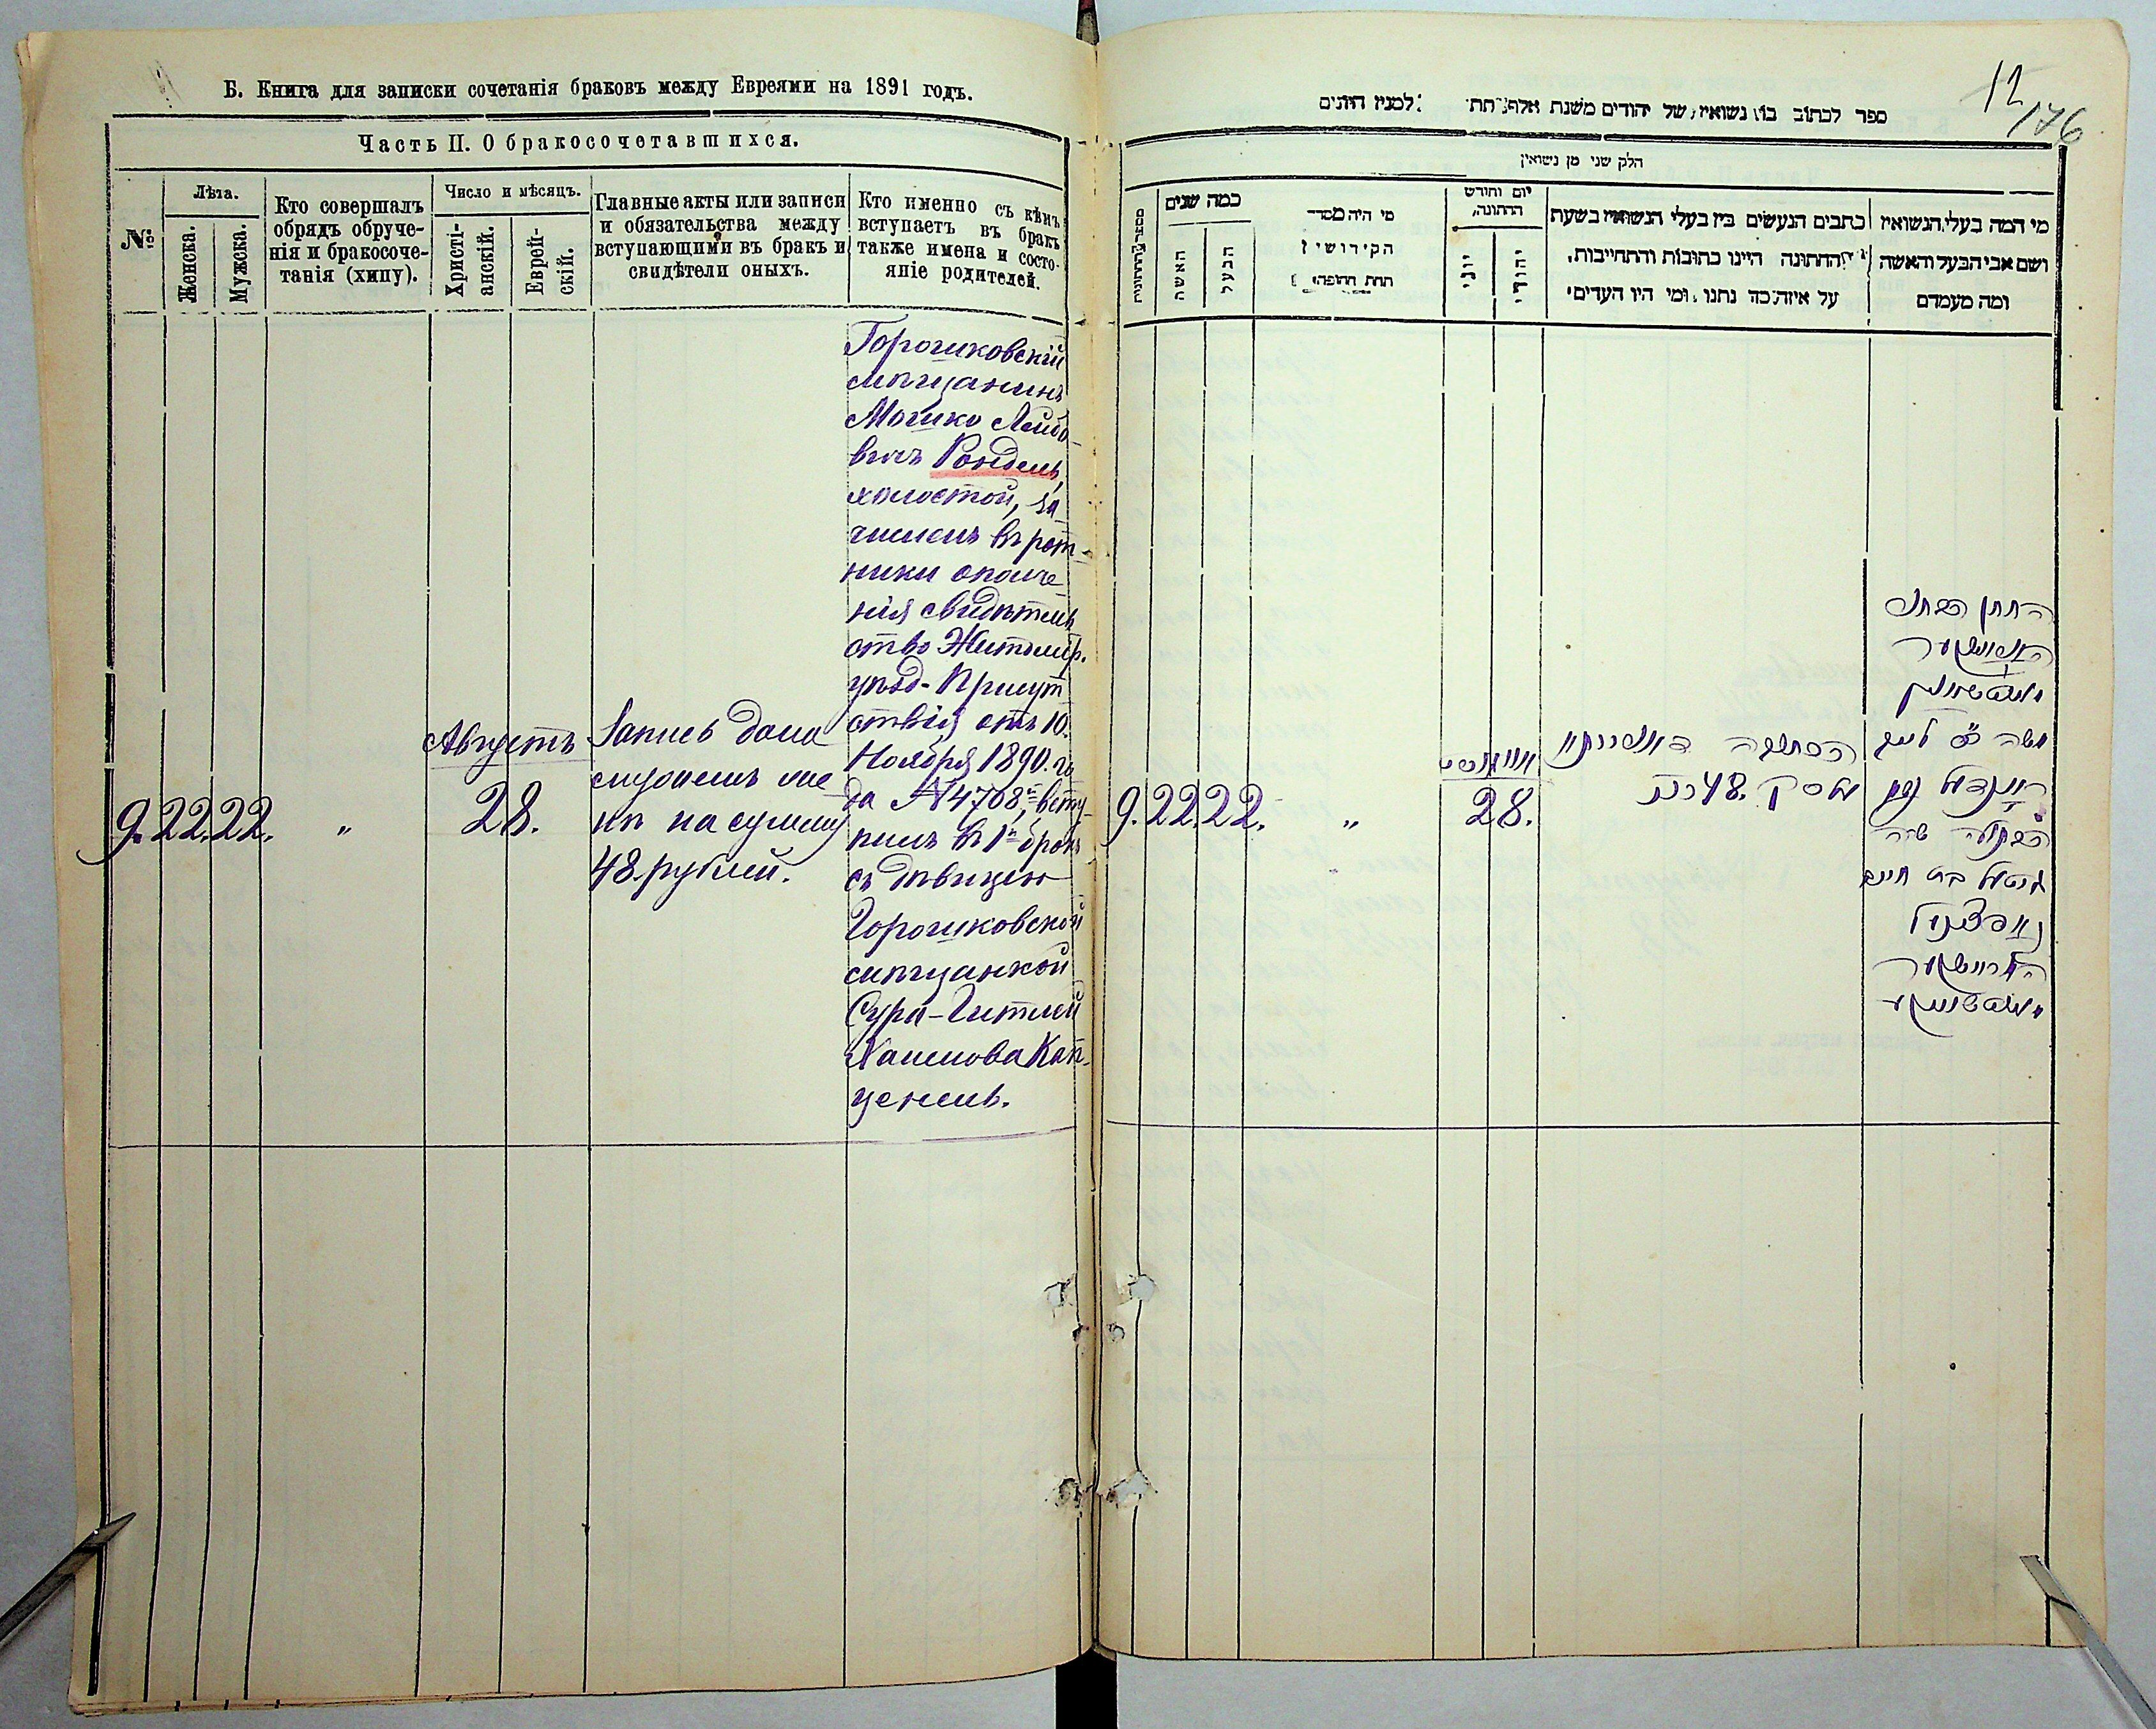 Б. Книга для записки сочетанія браковъ между Евреями на 1891 годъ.
Часть II. О бракосочетавшихся.
№
Лѣта.
Женска.
Мужска.
Кто совершалъ
обрядъ обруче-
нія и бракосоче-
танія (хипу).
Число и мѣсяцъ.
Христі-
анскій.
Еврей-
скій.
Главные акты или записи
и обязательства между
вступающими въ бракъ и
свидѣтели оныхъ.
Кто именно съ кѣмъ
вступаетъ въ бракъ
также имена и состо-
яніе родителей.
9. 22. 22. „
Августъ
28.
Запись дана
на сумму
48 рублей.
Горошковскій
мѣщанинъ
Мошко Лейбо-
вичъ Рондель,
холостой, за-
численъ въ рат-
ники ополче
нія свидѣтель
ство Житомір.
уѣзд. Присут
ствія отъ 10.
Ноября 1890. го
да № 4708, всту-
пилъ въ 1й бракъ
съ дѣвицею
Горошковской
мѣщанкой
Сура-Гитлей
Хаимова Кап-
ценель.
12
176
ספר לכתוב בו נשואין של יהודים משנת אלף תת למנין היונים
חלק שני מן נשואין
כמה שנים
האשה
הבעל
מי היה מסדר
הקידושין
תחת החופה
יום וחודש
החתונה
יוני
יהודי
כתבים הנעשים בין בעלי הנשואין בשעת
החתונה היינו כתובות והתחייבות,
על איזה כה נתנו ומי היו העדים
מי המה בעלי הנשואין
ושם אבי הבעל והאשה
ומה מעמדם
9. 22. 22. „
28.
48
החתן הבחור
משה
הבתולה שרה
גיטל בת חיים